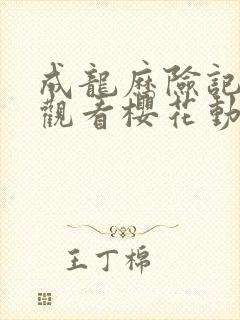 成龍歷險記
觀看櫻花動
王丁棉